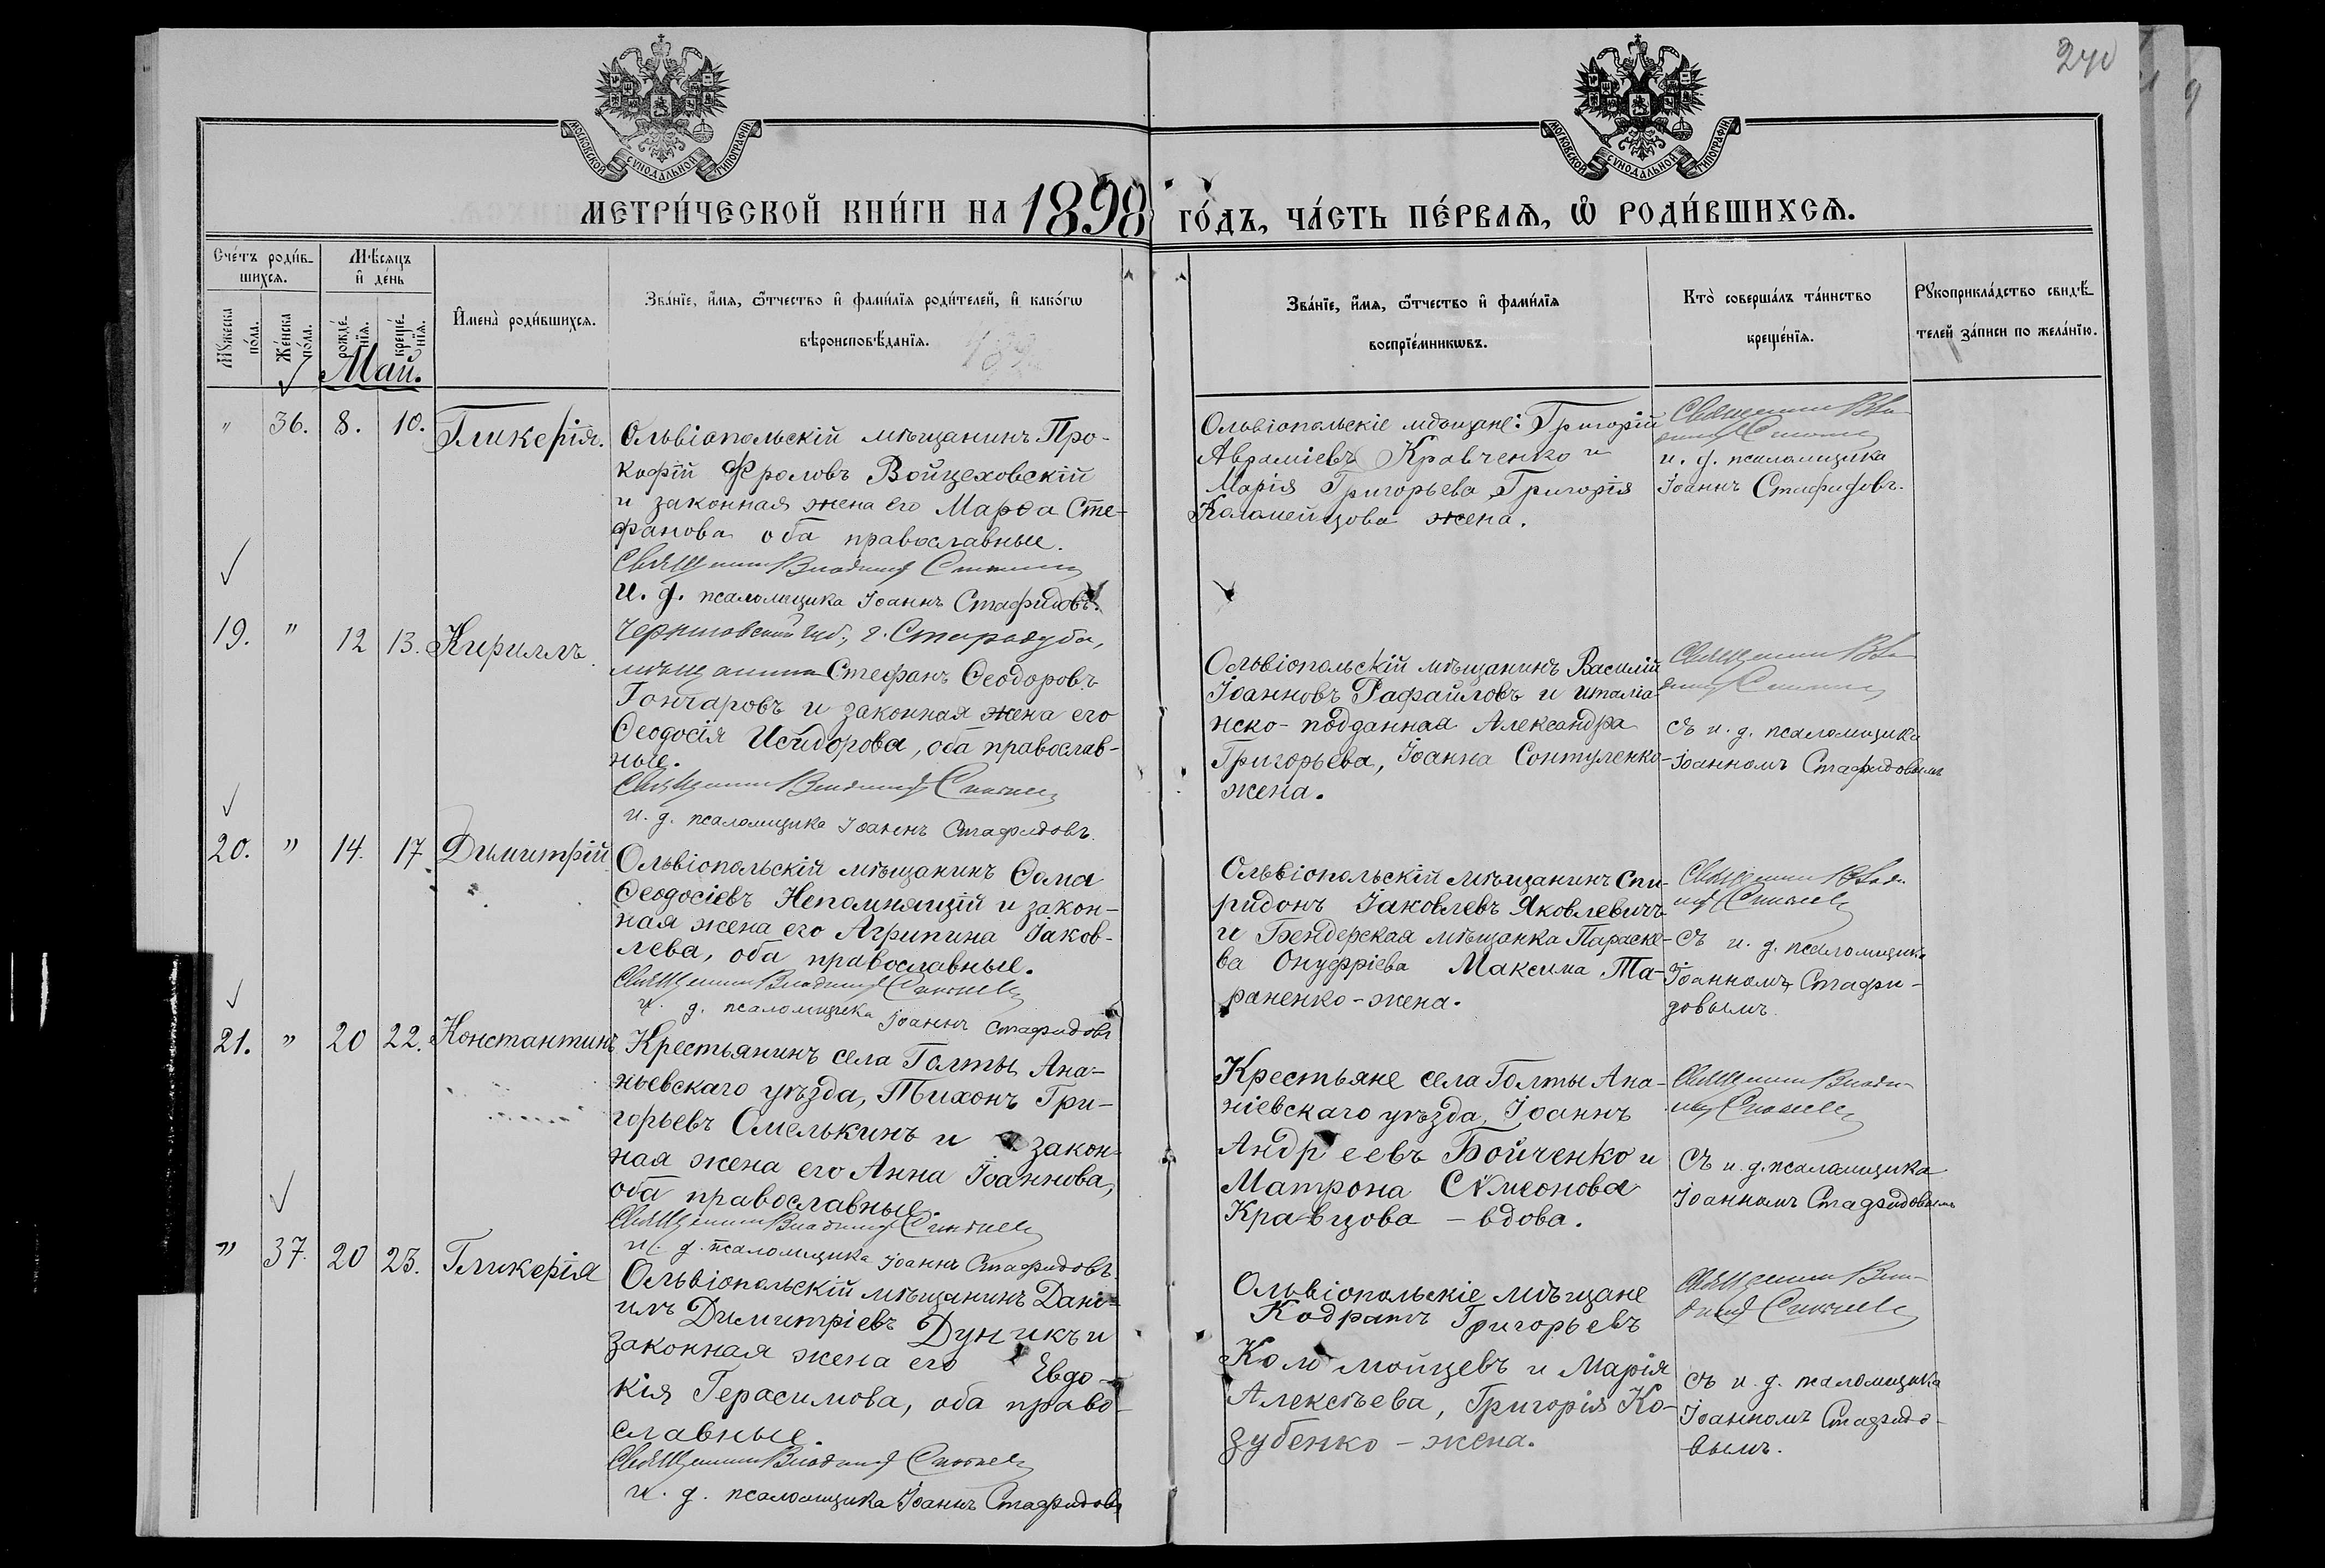 240
МОСКОВСКОЙ СѴНОДАЛЬНОЙ ТИПОГРАФІИ
МОСКОВСКОЙ СѴНОДАЛЬНОЙ ТИПОГРАФІИ
МЕТРИ́ЧЕСКОЙ КНИ́ГИ НА 1898 ГО́ДЪ, ЧА́СТЬ ПЕ́РВАѦ, Ѽ РОДИ́ВШИХСѦ.
Сче́тъ роди́в-
шихсѧ.
Мꙋ́жеска по́ла.
Же́нска по́ла.
Мѣ́сяцъ
и҆ де́нь
рожде́-
нїѧ.
креще́-
нїѧ.
Май.
И҆мена̀ роди́вшихсѧ.
Зва́нїе, и҆́мѧ, ѻ҆́тчество и҆ фами́лїѧ роди́телей, и҆ како́гѡ
вѣроисповѣ́данїѧ.
Зва́нїе, и҆́мѧ, ѻ҆́тчество и҆ фами́лїѧ
воспрїе́мникѡвъ.
Кто̀ соверша́лъ та́инство
креще́нїѧ.
Рꙋкоприкла́дство свидѣ́-
телей за́писи по жела́нїю.
" 36. 8. 10. Гликерія.
Ольвіопольскій мѣщанинъ Про-
кофій Фроловъ Войцеховскій
и законная жена его Марѳа Сте-
фанова оба православные.
Священникъ Владимиръ
И. д. псаломщика Іоаннъ Стафидовъ.
Ольвіопольскіе мѣщане: Григорій
Авраміевъ Кравченко и
Марія Григорьева Григорія
Коломейцова жена.
Священникъ Вла-
димиръ
и. д. псаломщика
Іоаннъ Стафидовъ.
19. " 12 13. Кириллъ.
Черниговской губ., г. Стародуба,
мѣщанинъ Стефанъ Ѳеодоровъ
Гончаровъ и законная жена его
Ѳеодосія Исидорова, оба православ-
ные.
Священникъ Владимиръ
и. д. псаломщика Іоаннъ Стафидовъ.
Ольвіопольскій мѣщанинъ Василій
Іоанновъ Рафаиловъ и италіа-
нско-подданная Александра
Григорьева, Іоанна Сонтуленко-
жена.
Священникъ Вла-
димиръ
съ и. д. псаломщика
Іоанномъ Стафидовымъ
20. " 14. 17. Димитрій
Ольвіопольскій мѣщанинъ Ѳома
Ѳеодосіевъ Непомнящій и закон-
ная жена его Агрипина Іаков-
лева, оба православные.
Священникъ Владимиръ
и. д. псаломщика Іоаннъ Стафидовъ
Ольвіопольскій мѣщанинъ Спи-
ридонъ Іаковлевъ Яковлевичъ
и Бендерская мѣщанка Параске-
ва Онуфріева Максима Та-
раненко-жена.
Священникъ Влади-
миръ
съ и. д. псаломщика
Іоанномъ Стафи-
довымъ.
21. " 20 22. Константинъ
Крестьянинъ села Голты, Ана-
ньевскаго уѣзда, Тихонъ Гри-
горьевъ Омелькинъ и закон-
ная жена его Анна Іоаннова,
оба православные.
Священникъ Владимиръ
и. д. псаломщика Іоаннъ Стафидовъ.
Крестьяне села Голты Ана-
ніевскаго уѣзда, Іоаннъ
Андреевъ Бойченко и
Матрона Сѵмеонова
Кравцова - вдова.
Священникъ Влади-
миръ
съ и. д. псаломщика
Іоанномъ Стафидовымъ
" 37. 20 23. Гликерія
Ольвіопольскій мѣщанинъ Дані-
илъ Димитріевъ Дуникъ и
законная жена его Евдо-
кія Герасимова, оба право-
славные.
Священникъ Владимиръ
и. д. псаломщика Іоаннъ Стафидовъ
Ольвіопольскіе мѣщане
Кодратъ Григорьевъ
Коломойцевъ и Марія
Алексѣева, Григорія Ко-
зубенко - жена.
Священникъ Вла-
димиръ
съ и. д. псаломщика
Іоанномъ Стафидо-
вымъ.